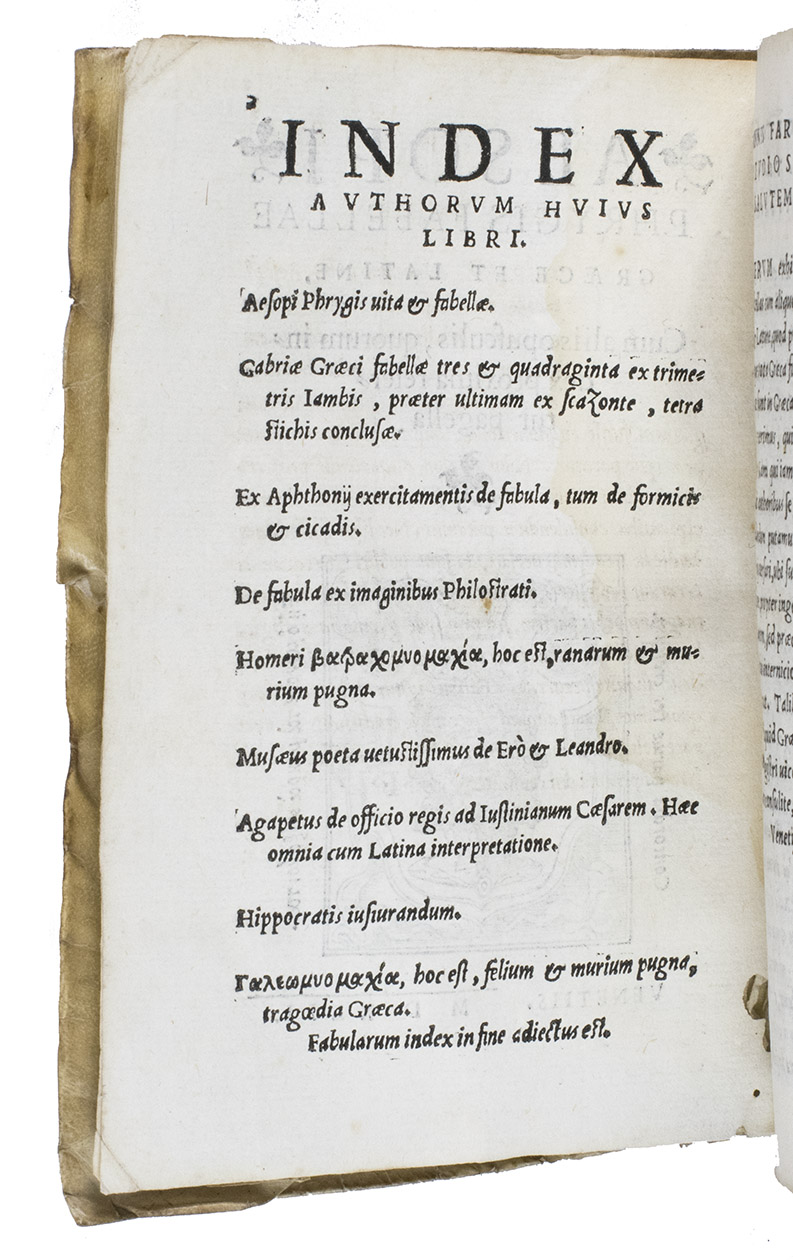 INDEX
AVTHORVM HVIVS
LIBRI.
Aesopi Phrygis uita & fabellæ.
Gabriæ Græci fabellæ tres & quadraginta ex trime=
tris Iambis, præter ultimam ex ſcazonte, tetra
ſtichis concluſæ.
Ex Aphthonij exercitamentis de fabula, tum de formicis
& cicadis.
De fabula ex imaginibus Philoſtrati.
Homeri βατραχομυομαχία, hoc eſt, ranarum & mu=
rium pugna.
Muſæus poeta uetuſtiſſimus de Erò & Leandro.
Agapetus de officio regis ad Iuſtinianum Cæſarem. Hæc
omnia cum Latina interpretatione.
Hippocratis iuſiurandum.
Γαλεωμυομαχία, hoc eſt, felium & murium pugna,
tragœdia Græca.
Fabularum index in fine adiectus eſt.